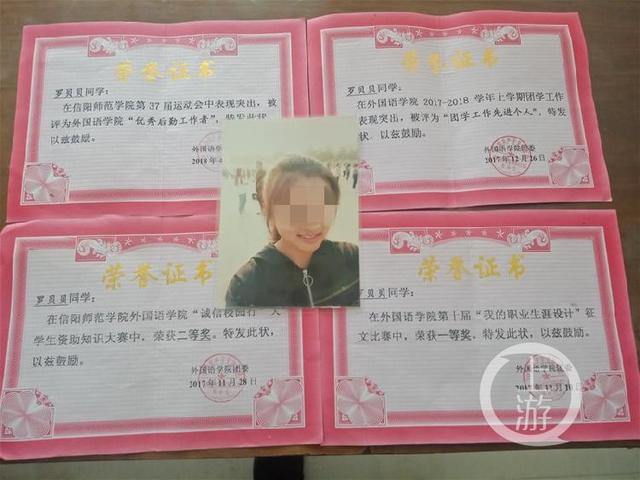 荣誉证书
罗贝贝同学：
在信阳师范学院第 37 届运动会中表现突出，被
评为外国语学院“优秀后勤工作者”，特发此状，
以兹鼓励。
外国语
2018 年
荣誉证书
罗贝贝同学：
在外国语学院 2017-2018 学年上学期团学工作
表现突出，被评为“团学工作先进个人”，特发
状，以兹鼓励。
外国语学院团委
2017 年 12 月 26 日
荣誉证书
罗贝贝同学：
在信阳师范学院外国语学院“诚信校园行”大
学生资助知识大赛中，荣获二等奖。特发此状，
以兹鼓励。
外国语学院团委
2017 年 11 月 28 日
荣誉证书
罗贝贝同学：
在外国语学院第十届“我的职业生涯设计”征
文比赛中，荣获一等奖。特发此状，以兹鼓励。
外国语学院团委
年 12 月 10 日
游